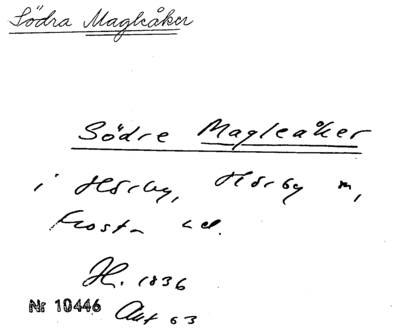 Södra Magleåker
Södre Magleåker
i Hörby, Hörby sn,
Frosta hd.
H. 1836
Nr 10446 Akt 63